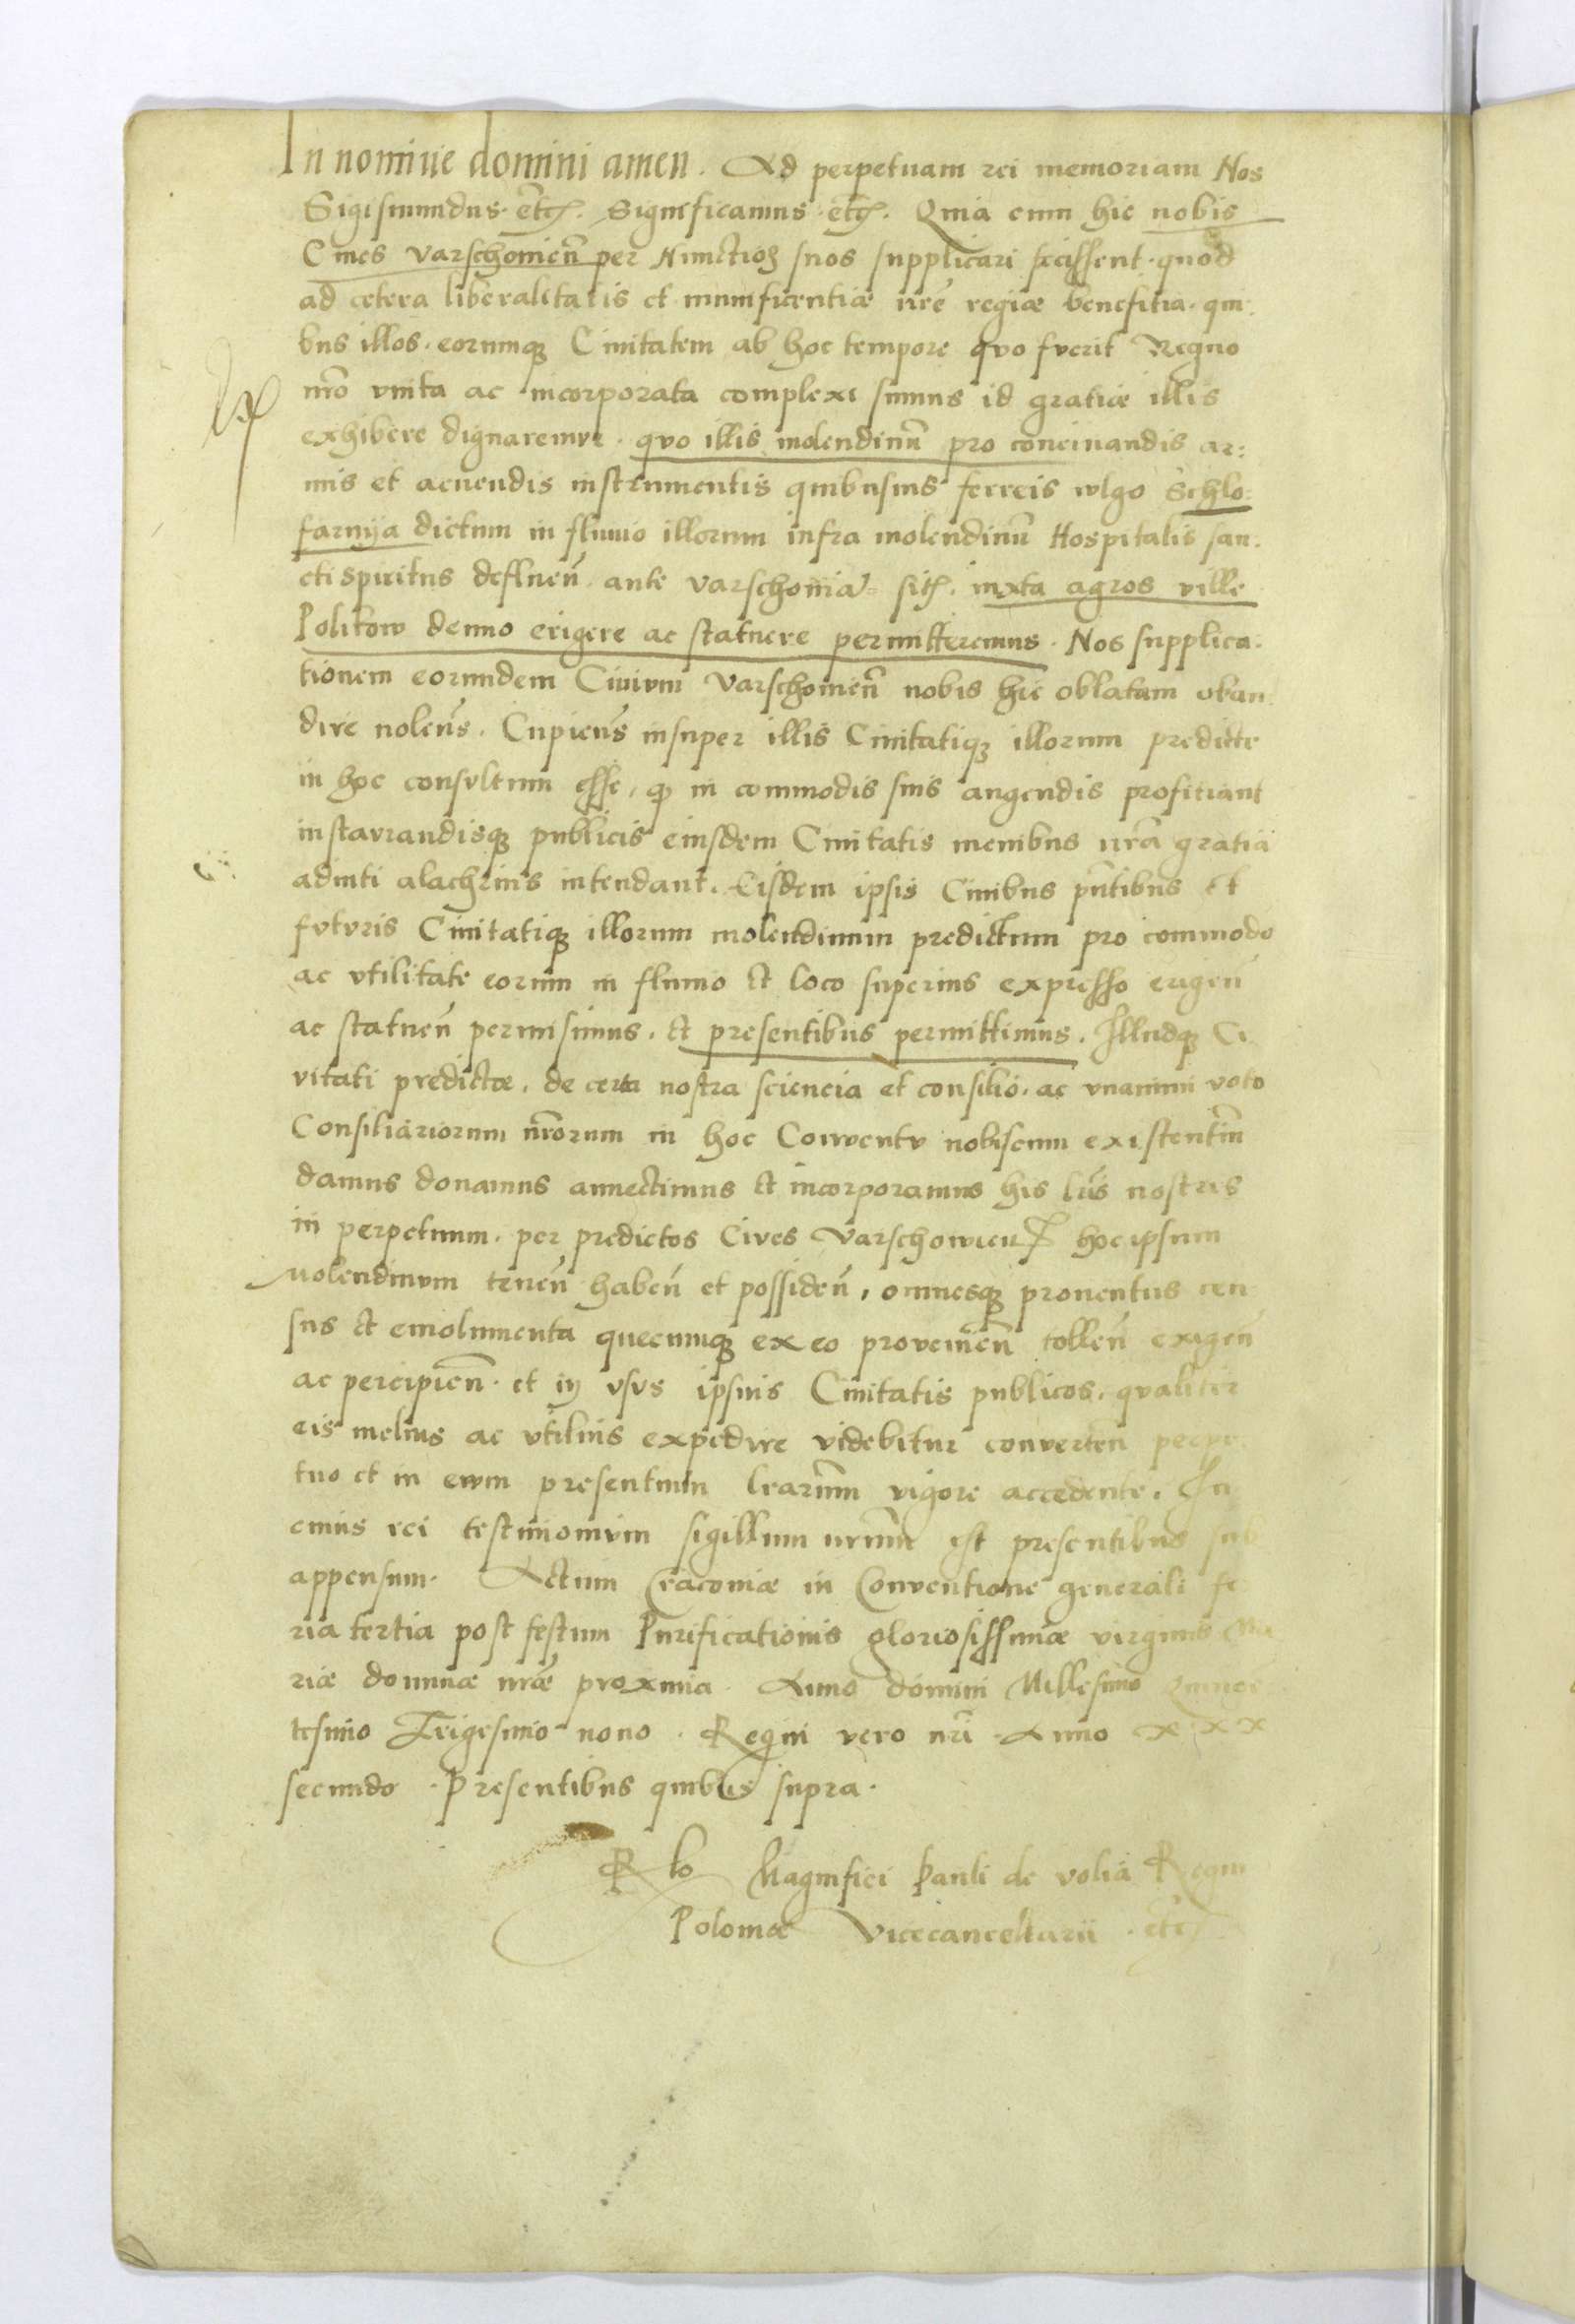 In nomine domini amen. Ad perpetuam rei memoriam Nos
Sigismundus. etc. Significamus. etc. Quia cum hic nobis
Cives Varschovien̄ per Nunctios suos supplicari fecissent. quod
ad cetera liberalitatis et munificentiæ nr̄e regiæ benefitia. qui:
bus illos. eorumq; Civitatem ab hoc tempore quo fuerit Regno
nr̄o unita ac incorporata complexi sumus id gratiæ illis
exhibere dignaremur. quo illis molendinū pro concinandis ar:
mis et acuendis instrumentis quibusuis ferreis wlgo Schlo:
farnya dictum in fluvio illorum infra molendinū Hospitalis san:
cti spiritus defluen̄ ante Varschoviā sit. iuxta agros ville
Polikow denuo erigere ac statuere permitteremus. Nos supplica:
tionem eorundem Civium Varschovien̄ nobis hic oblatam obau
dire nolen̄s. Cupien̄s insuper illis Civitatiq; illorum predicte
in hoc consultum esse, q in commodis suis augendis profitiant
instaurandisq; publicis eiusdem Civitatis menibus nr̄a gratia
adiuti alachrius intendant. Eisdem ipsis Civibus pn̄tibus et
futuris Civitatiq; illorum molendinum predictum pro commodo
ac utilitate eorum in fluvio et loco superius expresso erigen̄
ac statuen̄ permisimus. et presentibus permittimus. Illudq; Ci
vitati predictæ. de certa nostra sciencia et consilio. ac unanimi voto
Consiliariorum nr̄orum in hoc Conventu nobiscum existentiū
damus donamus annectimus et incorporamus his lr̄is nostris
in perpetuum. per predictos Cives Varschovien hoc ipsum
Molendinum tenen̄ haben̄ et possiden̄, omnesq; proventus cen
sus et emolumenta quecumq; ex eo provenien̄ tollen̄ exigen̄
ac percipien̄. et in usus ipsius Civitatis publicos. qualiter
eis melius ac utilius expedire videbitur converten̄ perpe
tuo et in evum presentium lr̄arum vigore accedente. In
cuius rei testimonium sigillum nr̄um est presentibus sub
appensum. Actum Cracoviæ in Conventione generali fe
ria tertia post festum Purificationis gloriosissimæ virginis Ma
riæ dominæ nr̄æ proxima. Anno domini Millesimo Quinge
tesimo Trigesimo nono. Regni vero nr̄i Anno XXX
secundo. Presentibus quibus supra.
Rlo Magnifici Pauli de volia Regni
Poloniæ Vicecancellarii. etc